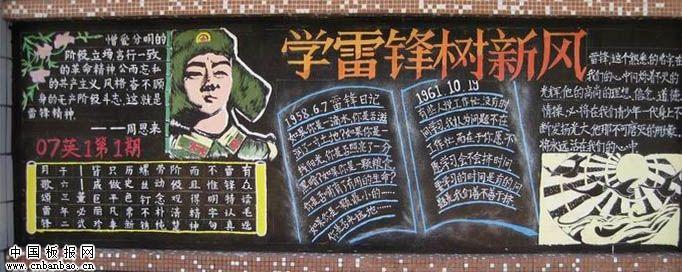 憎爱分明的
阶级立场言行一致
的革命精神公而忘私
的共产主义风格奋不顾
身的无产阶级斗志,这就是
雷锋精神
——周恩来
07英1第1期
有众读毛选
雷锋特认真
不惟明字句
而且得精神
阶级观清楚
劳动念朴纯
螺丝钉不锈
历史色常新
只做平凡事
皆成巨丽珍
学雷锋树新风
1958.6.7雷锋日记
如果你是一滴水,你是否滋
润了一寸土地?如果你是一
线阳光,你是否照亮了一分
黑暗?如果你是一颗粮食
你是否哺育了有用的生命?
如果你是一颗最小的……
你是否永远地
1961.10.19
有些人说工作忙,没有时
间学习我认为问题不在
工作忙,而在于你愿不
愿意学习会不会挤时间
要学习的时间是有的问
题是我们善不善于挤
雷锋,这个熟悉的名字在
我们的心中闪烁着不灭的
光辉他的高尚的理想、信念、道德
情操,必将在我们青少年一代身上不
断发扬光大他那不可磨灭的形象,
将永远活在我们的心中
中国板报网
cnbanbao.cn